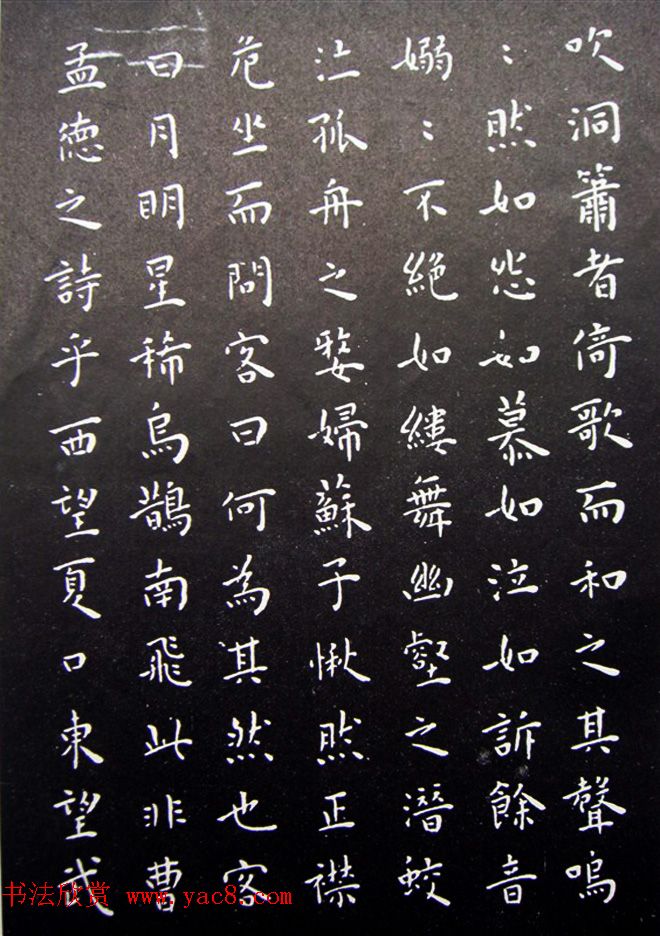 吹洞簫者倚歌而和之其聲嗚
〻然如怨如慕如泣如訴餘音
嫋〻不絕如縷舞幽壑之潛蛟
泣孤舟之嫠婦蘇子愀然正襟
危坐而問客曰何為其然也客
曰月明星稀烏鵲南飛此非曹
孟德之詩乎西望夏口東望武
书法欣赏 www.yac8.com